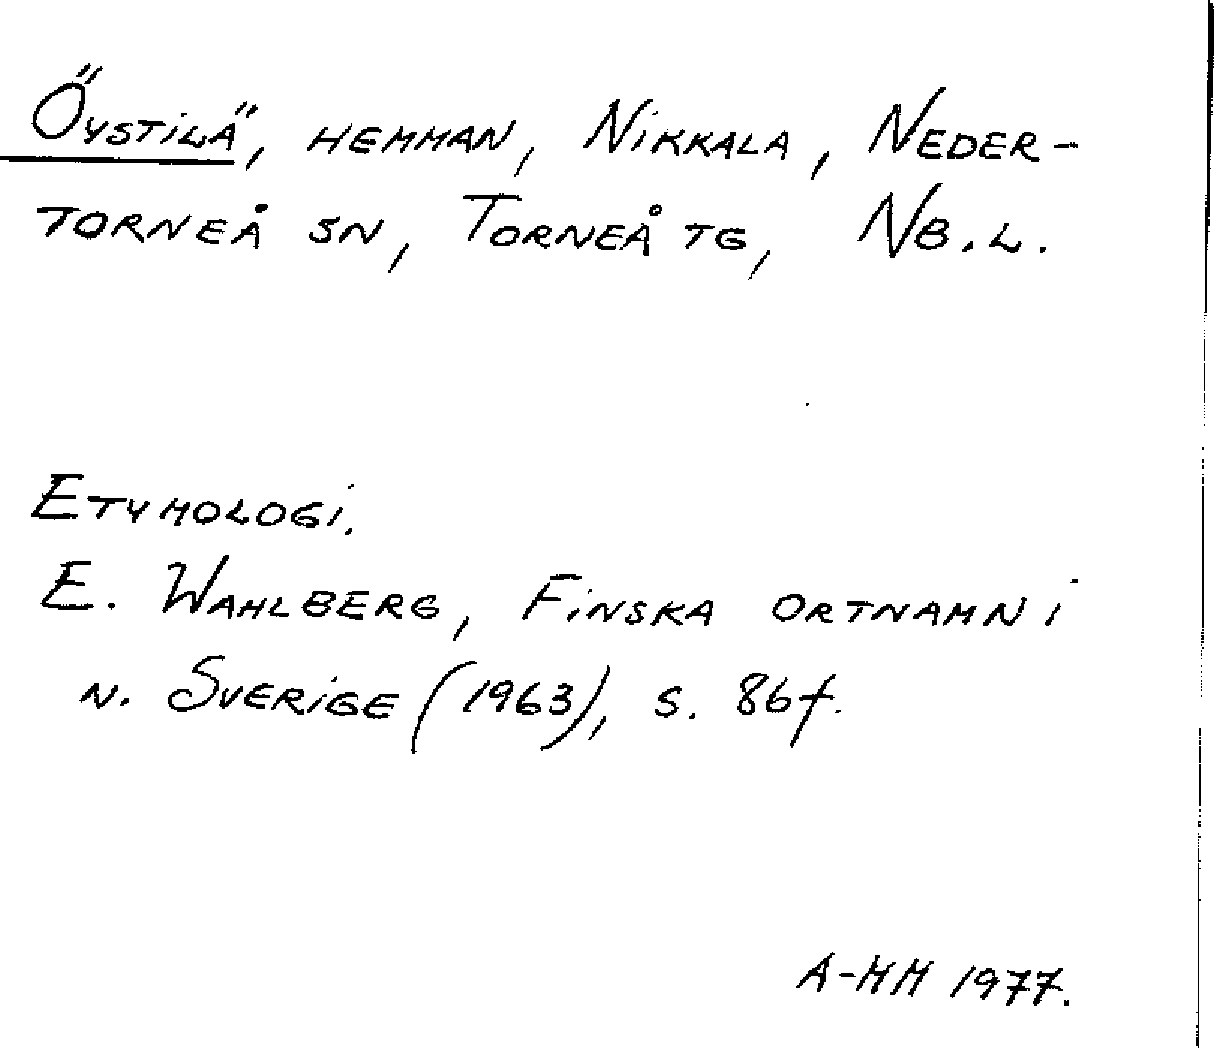 Öystilä, hemman, Nikkala, Neder-
torneå sn, Torneå tg, Nb.l.
Etymologi.
E. Wahlberg, Finska ortnamn i
n. Sverige (1963), s. 86f.
A-MM 1977.